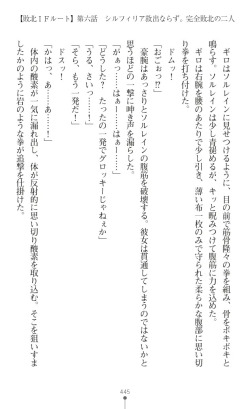 【敗北ＩＦルート】第六話　シルフィリア救出ならず。完全敗北の二人
　ギロはソルレインに見せつけるように、筋骨隆々の拳を組み、骨をボキボキと
鳴らす。ソルレインは少し青褪めるが、キッと睨みつけて腹筋に力を込めた。
　ギロは右腕をおもむろに少し引き、薄い布一枚のみで守られた柔らかな腹部に
拳を打ち付けた。
　ドムッ！
「おごぉっ⁉」
　豪腕はあっさりとソルレインの腹筋を破壊する。彼女は貫通してしまうのではないかと
思うほどの一撃に呻き声を漏らした。
「がっ……はぁ――……はぁ――……！」
「どうした？　たったの一発でグロッキーじゃねぇか」
「うる、さいっ……！」
「そら、もう一発だ！」
　ドスッ！
「かはっ、あ――……っ！」
　体内の酸素が一気に漏れ出し、体が反射的に思い切り酸素を取り込む。そこを狙いすま
したかのように岩のような拳が追撃を仕掛けた。
445